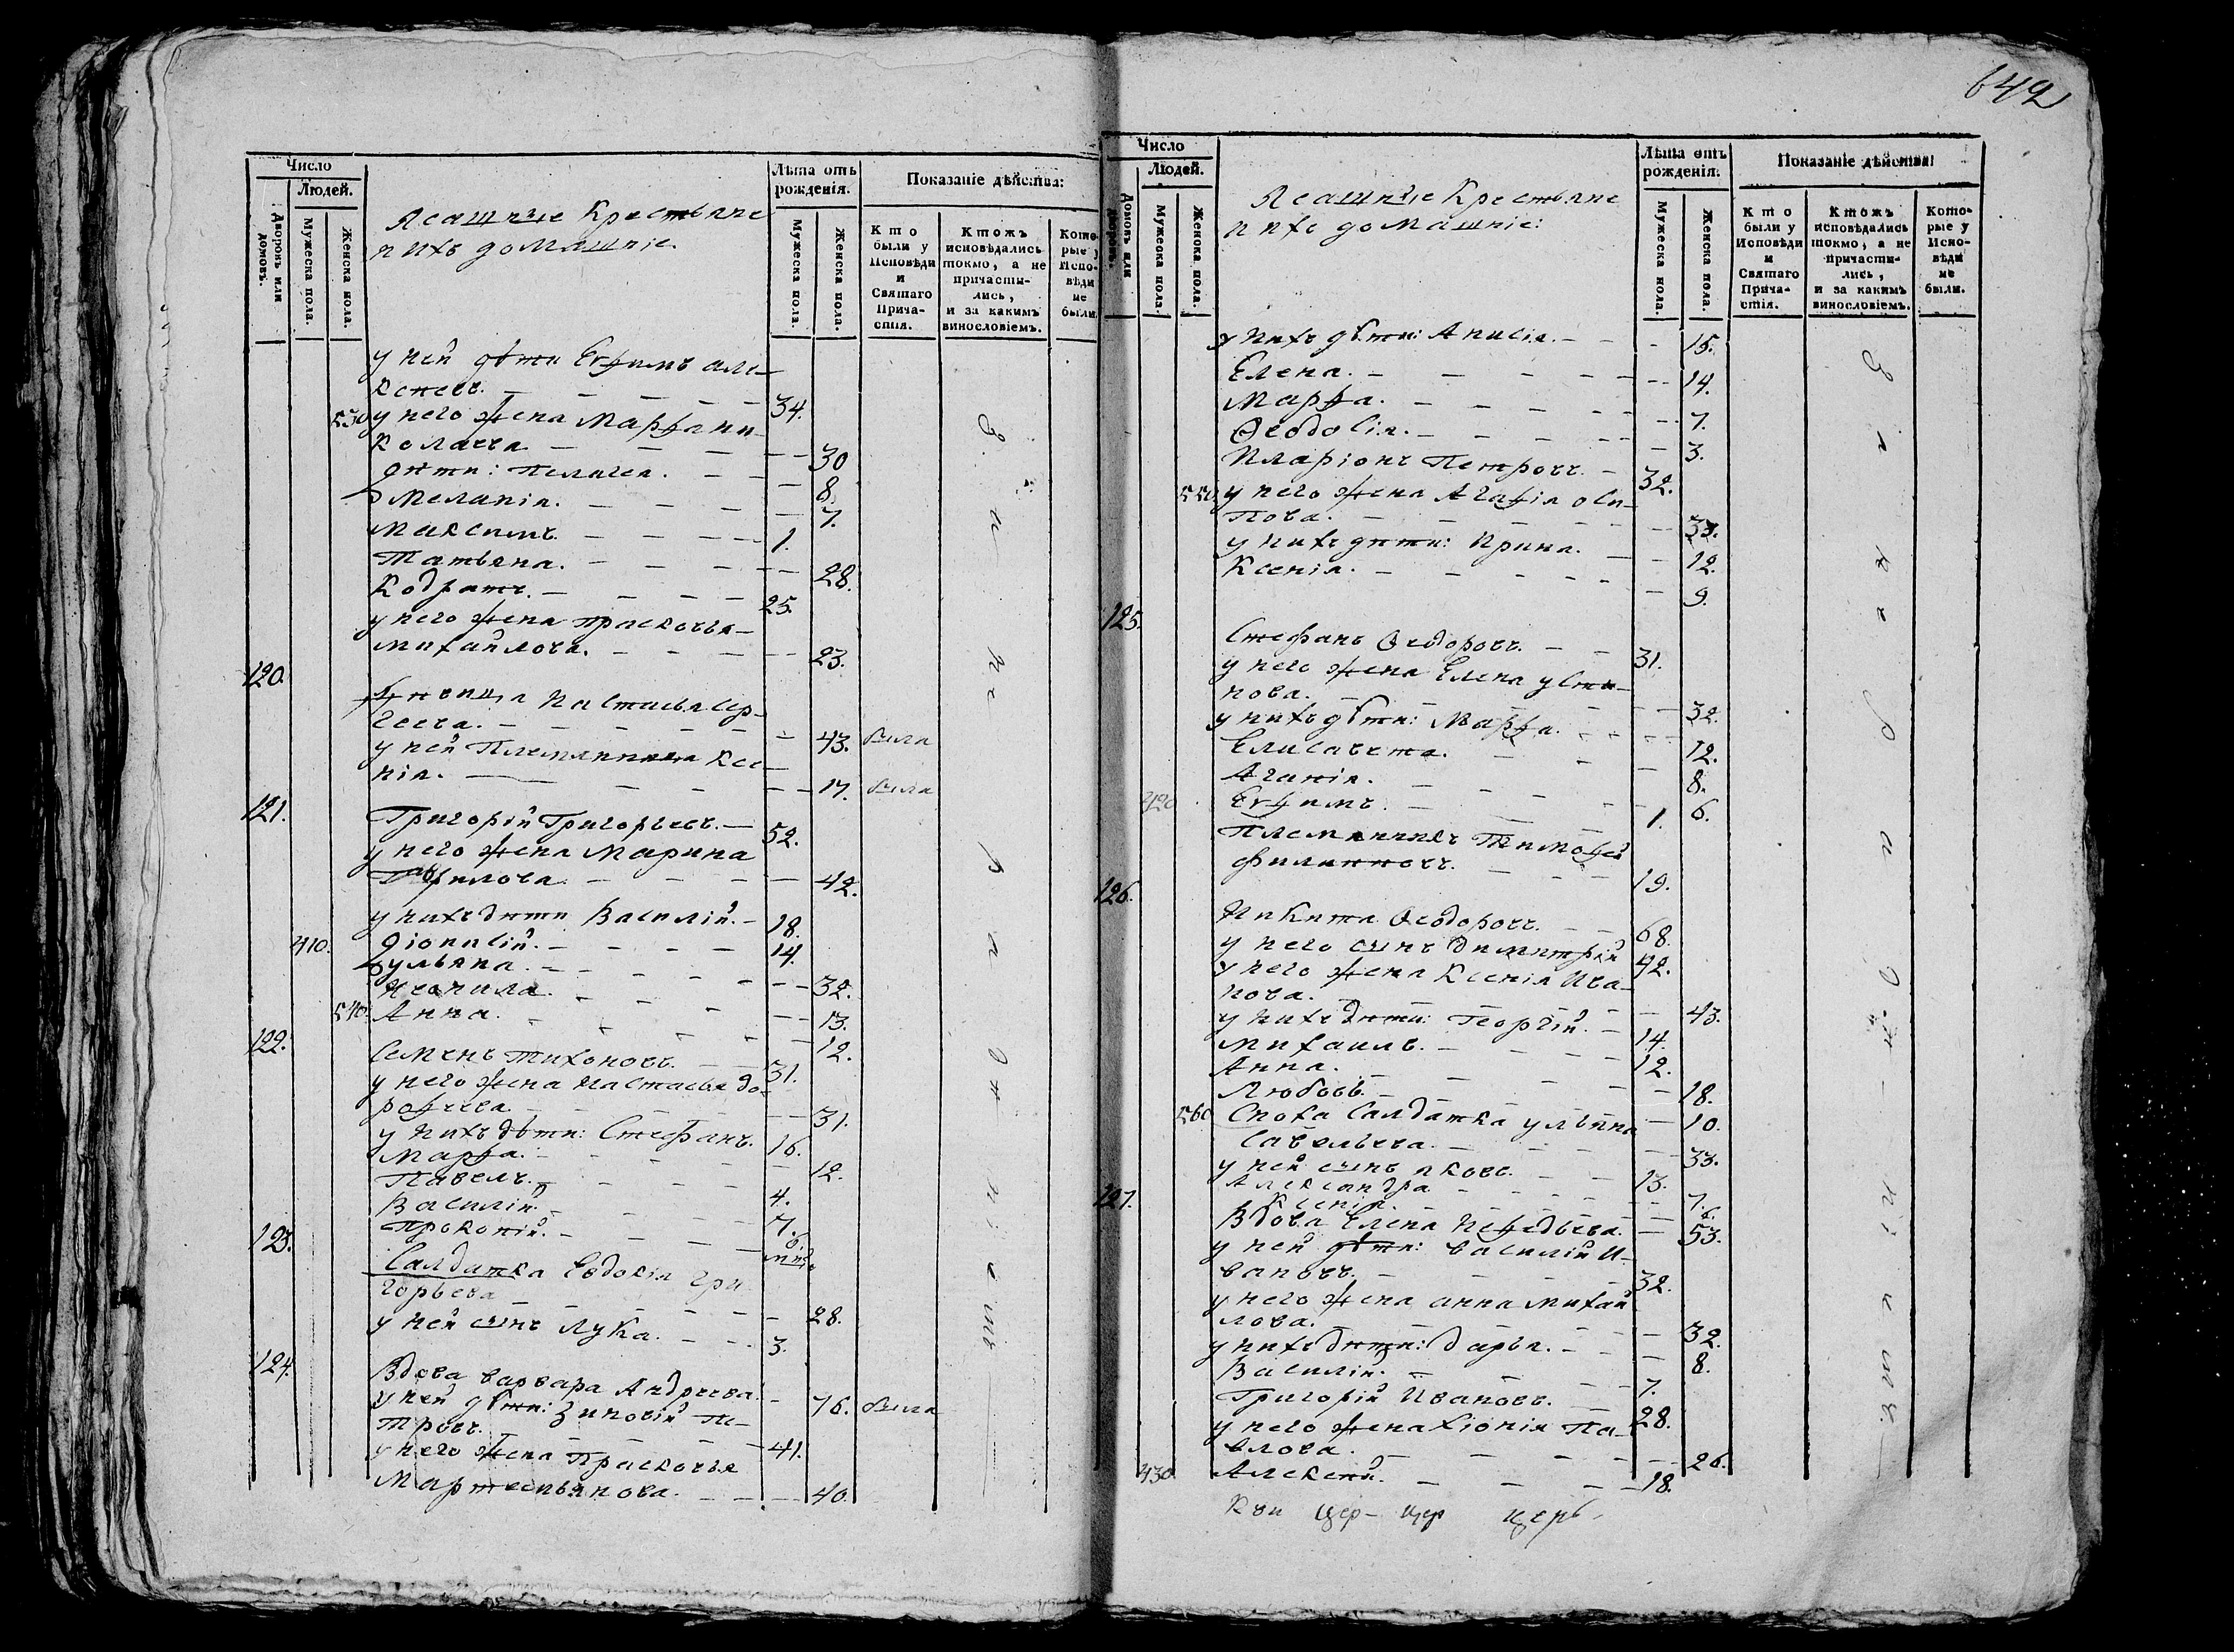 Число
Людей.
Дворовъ или домовъ.
Мужеска пола.
Женска пола.
Ясашные Крестьяне
и ихъ домашніе.
Лѣта отъ рожденія.
Мужеска пола.
Женска пола.
Показаніе дѣйства:
Кто были у Исповѣди и Святаго Прича-стія.
Ктожъ исповѣдались токмо, а не причасти-лись, и за какимъ винословіемъ.
Кото-рые у Испо-вѣди не были.
у ней дѣти Евѳимъ але-
ксѣевъ. 34.
530 у него жена Марѳа ни-
колаева 30
дѣти: Пелагея. 8.
Меланія. 7.
Максимъ. 1.
Татьяна. 28.
Кодратъ. 25.
у него жена Прасковья
Михайлова. 23.
120.
Дѣвица Настасья Сер-
геева. 43. была
у ней Племянница Ксе-
нія. 17. была
121.
Григорій Григорьевъ. 52.
у него жена Марина
Гаврилова 42.
у нихъ дѣти Василій. 18.
410. Діонисій. 14.
Ульяна. 32.
Неонила. 13.
540. Анна. 12.
122.
Семенъ Тихоновъ. 31.
у него жена Настасья до-
роѳеева 31.
у нихъ дѣти: Стефанъ. 16.
Марѳа. 12.
Павелъ. 4.
Василій. 7.
Прокопій.
123.
Салдатка Евдокія Гри
горьева 28.
у ней сынъ Лука. 3.
124.
Вдова варвара Андреева. 76. была
у ней дѣти: Зиновій Пе-
тровъ. 41.
у него жена Прасковья
Мартемьянова. 40.
За нерадѣніемъ
642
Число
Людей.
Домовъ или дворовъ.
Мужеска пола.
Женска пола.
Ясашные Крестьяне
и ихъ домашніе:
Лѣта отъ рожденія.
Мужеска пола.
Женска пола.
Показаніе дѣйства:
Кто были у Исповѣди и Святаго Прича-стія.
Ктожъ исповѣдались токмо, а не причасти-лись, и за какимъ винословіемъ.
Кото-рые у Испо-вѣди не были.
у нихъ дѣти: Анисія. 15.
Елена. 14.
Марѳа. 7.
Ѳеодосія. 3.
Иларіонъ Петровъ. 32.
550. у него жена Агаѳія оси-
пова. 33.
у нихъ дѣти: Ирина. 12.
Ксенія. 9.
125.
Стефанъ Ѳедоровъ. 31.
у него жена Елена усти-
нова. 32.
у нихъ дѣти: Марѳа. 12.
Елисавета. 8.
Агапія. 6.
420 Евѳимъ. 1.
Племянникъ Тимоѳей
филипповъ. 19.
126.
Никита Ѳеодоровъ. 68.
у него сынъ димитрій 42.
у него жена Ксенія Ива-
нова. 43.
у нихъ дѣти: Георгій. 14.
Михаилъ. 12.
Анна. 18.
Любовь. 10.
560 Сноха Салдатка ульяна
савельева. 33.
у ней сынъ яковъ. 13.
Александра 7.
Ксенія. 6.
127.
Вдова Елена Неѳедьева. 53.
у ней дѣти: василій И-
вановъ. 32.
у него жена анна михай
лова. 32.
у нихъ дѣти: дарья. 8.
Василій. 7.
Григорій Ивановъ. 28.
у него жена Хіонія Па-
влова. 26.
430 Алексѣй. 18.
За нерадѣніемъ.
цер- цер церь